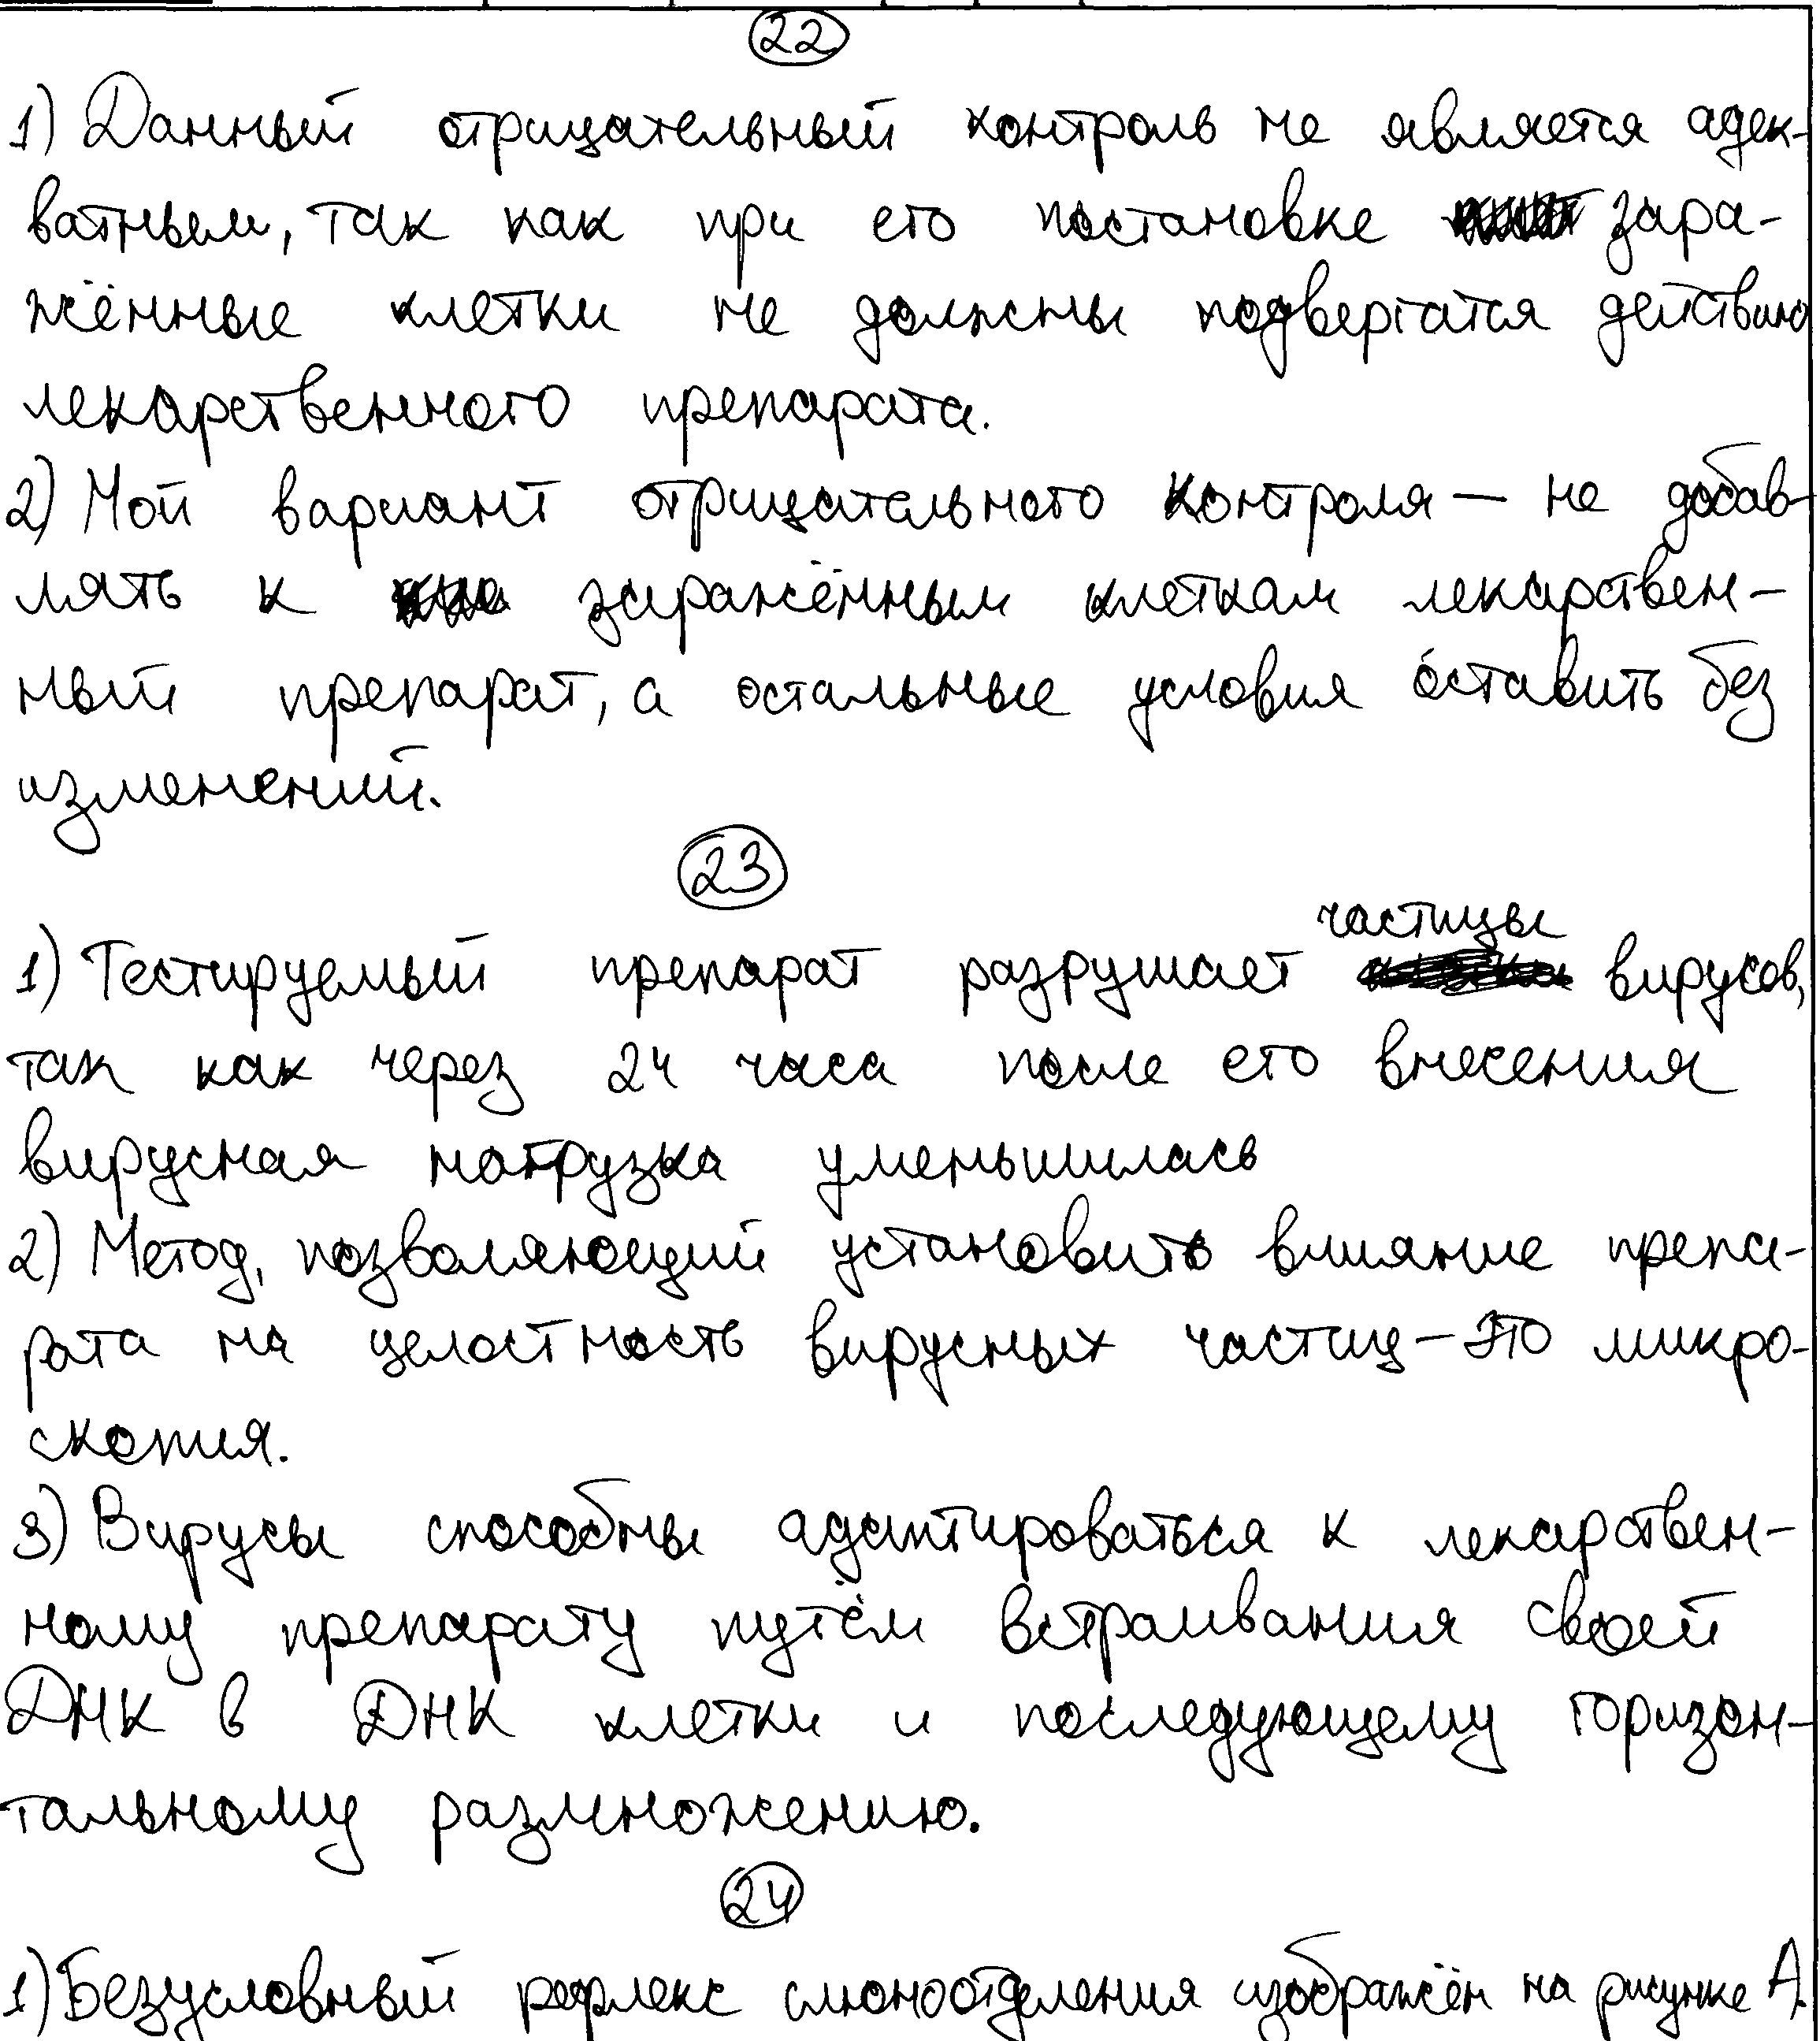 22
1) Данный отрицательный контроль не является адек-
ватным, так как при его постановке зара-
жённые клетки не должны подвергатся действию
лекарственного препарата.
2) Мой вариант отрицательного контроля — не добав-
лять к заражённым клеткам лекарствен-
ный препарат, а остальные условия оставить без
изменений.
23
частицы
1) Тестируемый препарат разрушает вирусов,
так как через 24 часа после его внесения
вирусная нагрузка уменьшилась
2) Метод, позволяющий установить влияние препа-
рата на целостность вирусных частиц - это микро-
скопия.
3) Вирусы способны адаптироваться к лекарствен-
ному препарату путём встраивания своей
ДНК в ДНК клетки и последующему горизон-
тальному размножению.
24
1) Безусловный рефлекс слюноотделения изображён на рисунке А.